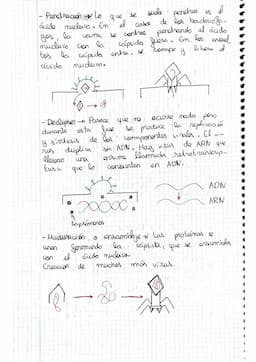 - Penetración → Lo que se suele penetrar es el
ácido nucleico. En el caso de los bacteriófa-
gos, la vaina se contrae penetrando el ácido
nucleico con la cápsida fuera. En los
la cápsida entra, se rompe y libera el
ácido nucleico.
- Eclipse → Parece que no ocurre nada pero
durante esta fase se produce la replicación
y síntesis de los componentes virales. El
rus duplica su ADN. Hay virus de ARN que
llevan una enzima llamada retrotranscrip-
tasa que lo convierten en ADN.
ADN
ARN
- Maduración o ensamblaje → Las proteínas se
unen formando la cápsida, que se ensambla
con el ácido nucleico.
Creación de muchos más virus.